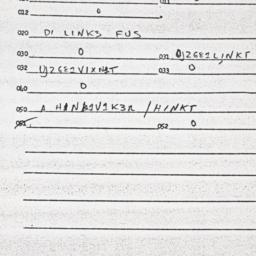 022 0
020 DI LINKS FUS
030 0 031 DJZGE1LINKT
032 UJZGE1VIXNT 033 0
040 0
050 A HINB1V1K3R /HINKT
051 052 0